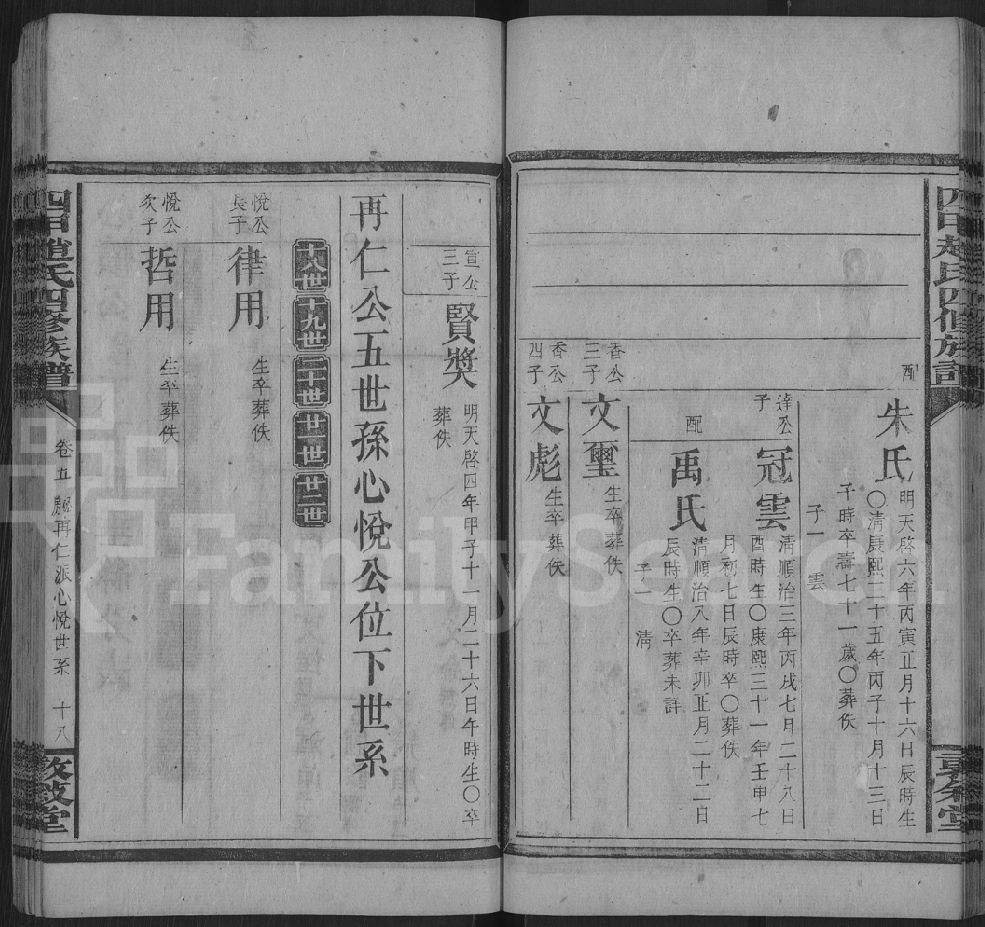 配
朱氏
明天啓六年丙寅正月十六日辰時生
〇清康熙三十五年丙子十月十三日
午時卒壽七十一歲〇葬佚
子一 雲
達公
子
冠雲
清順治三年丙戌七月二十八日
酉時生〇康熙三十一年壬申七
月初七日辰時卒〇葬佚
配
禹氏
清順治八年辛卯正月二十二日
辰時生〇卒葬未詳
子一 清
香公
三子
文璽
生卒葬佚
香公
四子
文彪
生卒葬佚
宣公
三子
賢獎
明天啓四年甲子十一月二十六日午時生〇卒
葬佚
再仁公五世孫心悅公位下世系
十八世
十九世
二十世
廿一世
廿二世
悅公
長子
律用
生卒葬佚
悅公
次子
哲用
生卒葬佚
趙氏四修族譜
卷五
再仁派心悅世系
十八
敦敍堂
FamilySearch